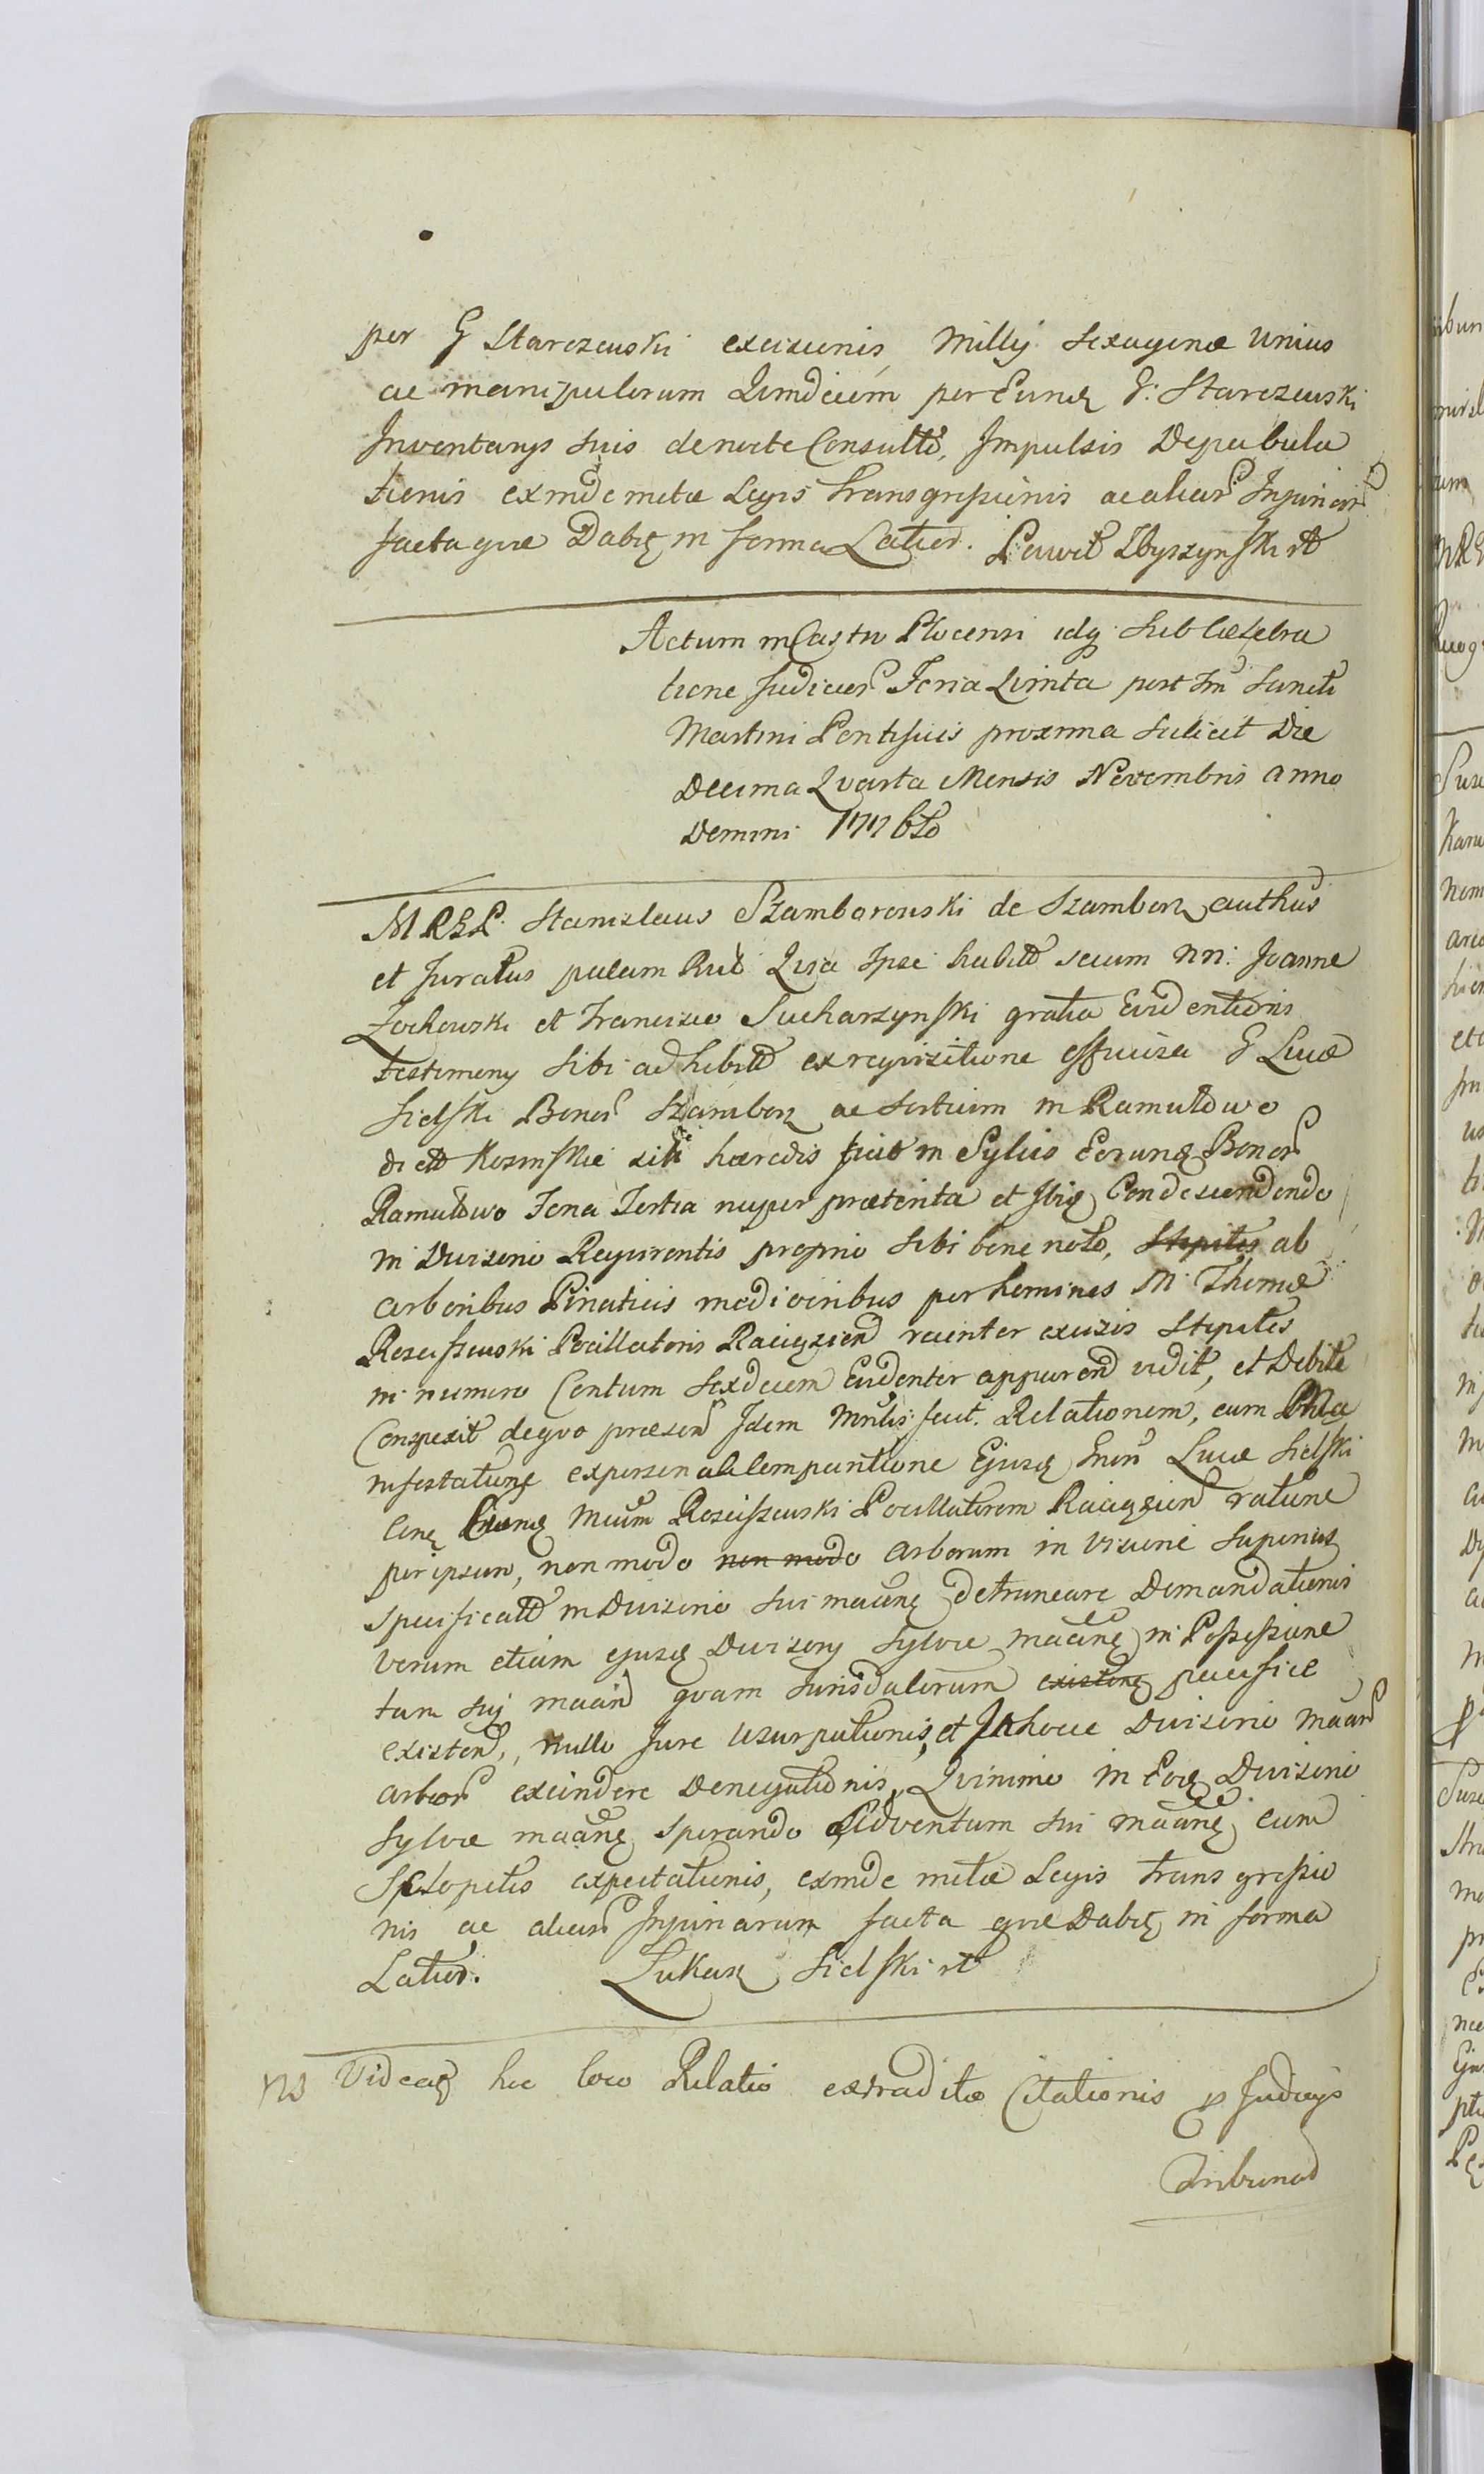 per G Starczewski excisionis, Milly sexagenæ unius
ac manipulorum Qvindecim per Eundz G: Starczewski
Inventarys suis de nocte Consulto, Impulsis Depabula
tionis exinde metæ Legis transgressionis ac aliar Injuriar
facta qvæ Dabit in forma Latior. Paweł Zbyszynski rt
Actum in Castro Plocensi idq sub Cælebra
tione Judicior Feria Qvinta post Fm Sancti
Martini Pontificis proxima scilicet Die
Decima Qvarta Mensis Novembris Anno
Domini 1776to
MRGP. Stanislaus Szamborowski de Szambory authus
et Juratus palam Rut Qvia Ipse habitt secum nn: Joanne
Zochowski et Francisco Sucharzynski gratia Evidentioris
testimony sibi adhibitt ex reqvisitione officiosa G Lucæ
Sielski Bonor Szambory ac sortium in Ramutowo
dictt Kosinskie sitt hæredis fuit in Sylvis Eorundz Bonor
Ramutowo Feria Tertia nuper præterita et Ibiq Condescendendo
in Divisorio Reqvirentis proprio sibi bene noto, Stipites ab
arboribus Pineticis mediocribus per homines M Thomæ
Rosciszewski Pocillatoris Raciązien recenter excisis Stipites
in numero Centum sexdecim Evidenter apparen vidit, et Debite
Conspexit de qvo præsen Idem Mnlis fecit Relationem, cum Pnta
nifestatione ex personali comparitione Ejusd Gnen Lucæ Sielski
Cone Eiund Mcum Rosciszewski Pocillatorem Raciązien ratione
per ipsum, non modo non modo arborum in visione superius
specificatt in Divisorio sui mcane detruncare Demandationis
verum etiam ejusd Divisory sylvæ mcane in Possessione
tam sui mcan qvam subsdalorum existene pacifice
existen, nullo Jure usurpationis, et In hocce Divisorio mcan
arbor excindere Denegationis, Qvinimo in Eod Divisorio
sylvæ mcane sperando Adventum sui mcane cum
Sclopetis expectationis, exinde metæ Legis transgressio
nis ac aliar Injuriarum facta qvæ Dabit in forma
Latior. Łukasz Sielski rt
NB Videatz hoc loco Relatio extraditæ Citationis p Judicys
Tribunal